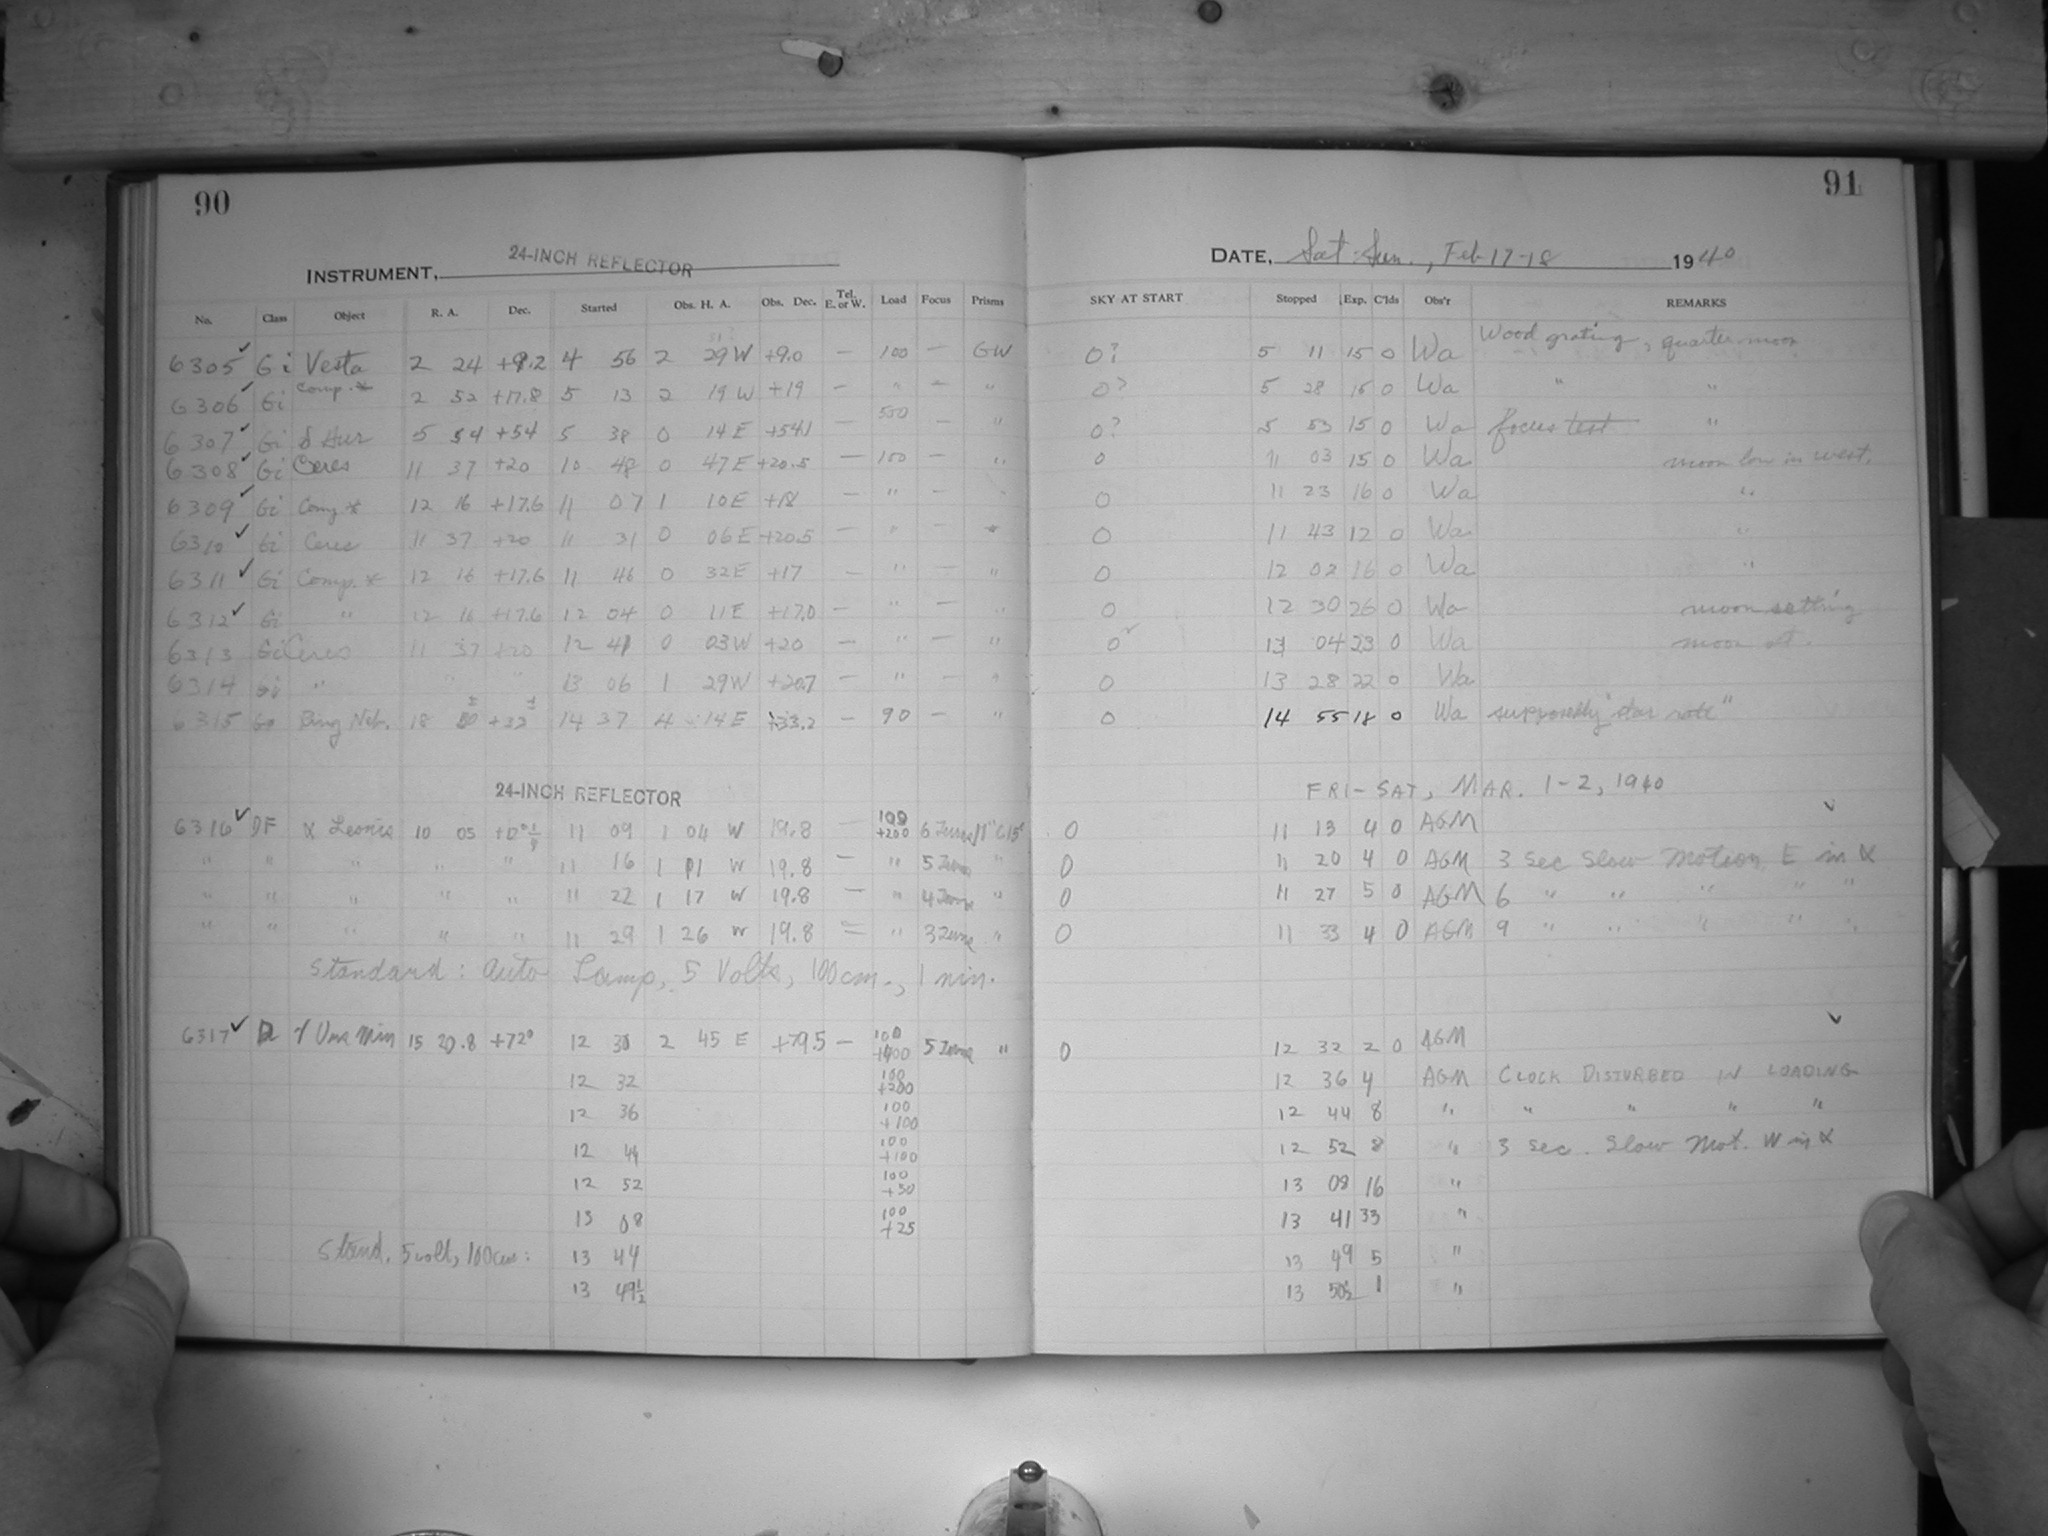 90
INSTRUMENT, 24-INCH REFLECTOR
No. Class Object R. A. Dec. Started Obs. H. A. Obs. Dec. Tel. E. or W. Load Focus Prisms
6305 Gi Vesta 2 24 +9.2 4 56 2 29 W +9.0 — 100 — GW
6306 Gi Comp. * 2 52 +17.8 5 13 2 19 W +19 — " — "
6307 Gi δ Aur 5 54 +54 5 38 0 14 E +541 — 500 — "
6308 Gi Ceres 11 37 +20 10 48 0 47 E +20.5 — 100 — "
6309 Gi Comp * 12 16 +17.6 11 07 1 10 E +18 — " —
6310 Gi Ceres 11 37 +20 11 31 0 06 E +20.5 — " — "
6311 Gi Comp. * 12 16 +17.6 11 46 0 32 E +17 — " — "
6312 Gi " 12 16 +17.6 12 04 0 11 E +17.0 — " — "
6313 Gi Ceres 11 37 +20 12 41 0 03 W +20 — " — "
6314 Gi " " " 13 06 1 29 W +20.7 — " — "
6315 Go Ring Neb. 18 50 +32 14 37 4 14 E +33.2 — 90 — "
24-INCH REFLECTOR
6316 DF α Leonis 10 05 11 09 1 04 W 19.8 — 100 +200
" " " " " 11 16 1 11 W 19.8 — " "
" " " " " 11 22 1 17 W 19.8 — " "
" " " " " 11 29 1 26 W 19.8 — " "
Standard: Auto Lamp, 5 Volts, 100 cm., 1 min.
6317 γ Urs Min 15 20.8 +72° 12 30 2 45 E +79.5 — 100 +400 "
12 32 100 +200
12 36 100 +100
12 44 100 +100
12 52 100 +50
13 08 100 +25
Stand. 5 volt, 100 cm: 13 44
13 49½
91
DATE, Sat-Sun., Feb 17-18 1940
SKY AT START Stopped Exp. C'lds Obs'r REMARKS
0? 5 11 15 0 Wa Wood grating, quarter moon
0? 5 28 15 0 Wa " "
0? 5 53 15 0 Wa focus test "
0 11 03 15 0 Wa moon low in west.
0 11 23 16 0 Wa "
0 11 43 12 0 Wa "
0 12 02 16 0 Wa "
0 12 30 26 0 Wa moon setting
0 13 04 23 0 Wa moon set.
0 13 28 22 0 Wa
0 14 55 18 0 Wa supposedly "star rate"
FRI-SAT, MAR. 1-2, 1940
0 11 13 4 0 AGM
0 11 20 4 0 AGM 3 sec slow motion E in α
0 11 27 5 0 AGM 6 " " " " "
0 11 33 4 0 AGM 9 " " " " "
0 12 32 2 0 AGM
12 36 4 AGM CLOCK DISTURBED IN LOADING
12 44 8 " " " " "
12 52 8 " 3 sec. slow mot. W in α
13 08 16 "
13 41 33 "
13 49 5 "
13 50½ 1 "